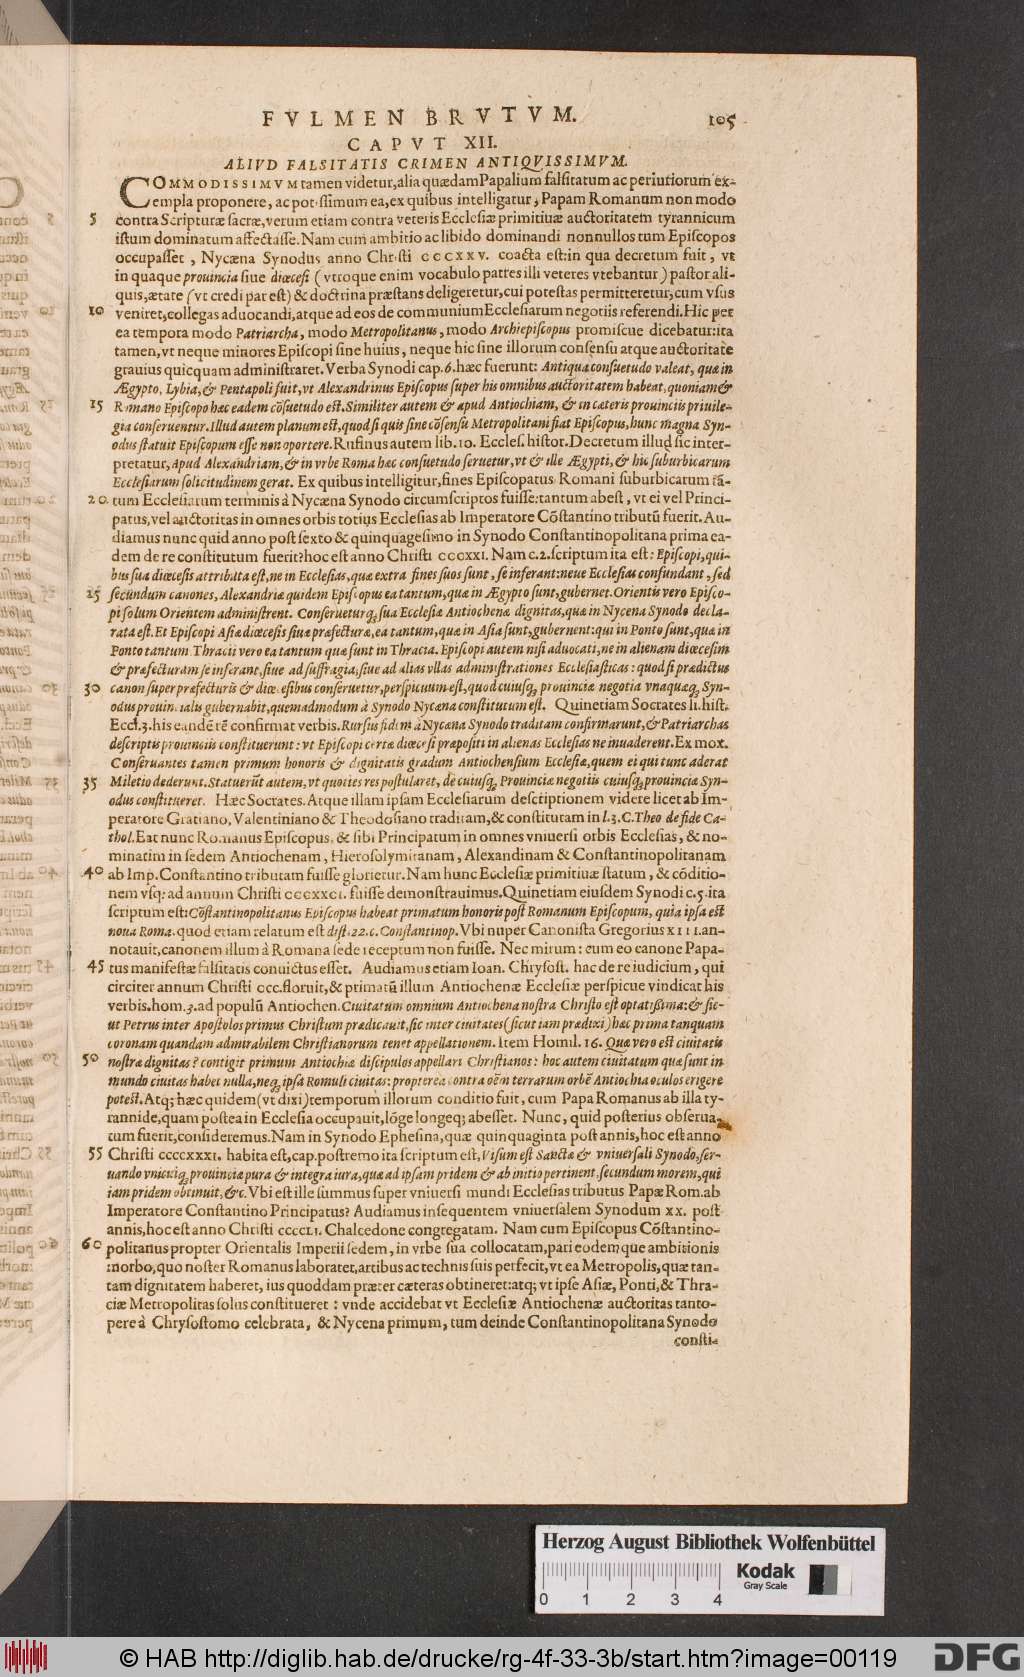 FVLMEN BRVTVM. 105
CAPVT XII.
ALIVD FALSITATIS CRIMEN ANTIQVISSIMVM.
COMMODISSIMVM tamen videtur, alia quædam Papalium falsitatum ac periuriorum ex-
empla proponere, ac potissimum ea, ex quibus intelligatur, Papam Romanum non modo
5 contra Scripturæ sacræ, verum etiam contra veteris Ecclesiæ primitiuæ auctoritatem tyrannicum
istum dominatum affectasse. Nam cum ambitio ac libido dominandi nonnullos tum Episcopos
occupasset, Nycæna Synodus anno Christi CCCXXV. coacta est: in qua decretum fuit, vt
in quaque prouincia siue diœcesi (vtroque enim vocabulo patres illi veteres vtebantur) pastor ali-
quis, ætate (vt credi par est) & doctrina præstans deligeretur, cui potestas permitteretur, cum vsus
10 veniret, collegas aduocandi, atque ad eos de communium Ecclesiarum negotiis referendi. Hic per
ea tempora modo Patriarcha, modo Metropolitanus, modo Archiepiscopus promiscue dicebatur: ita
tamen, vt neque minores Episcopi sine huius, neque hic sine illorum consensu atque auctoritate
grauius quicquam administraret. Verba Synodi cap. 6. hæc fuerunt: Antiqua consuetudo valeat, quæ in
Ægypto, Lybia, & Pentapoli fuit, vt Alexandrinus Episcopus super his omnibus auctoritatem habeat, quoniam &
15 Romano Episcopo hæc eadem cōsuetudo est. Similiter autem & apud Antiochiam, & in cæteris prouinciis priuile-
gia conseruentur. Illud autem planum est, quod si quis sine cōsensu Metropolitani fiat Episcopus, hunc magna Syn-
odus statuit Episcopum esse non oportere. Rufinus autem lib. 10. Eccles. histor. Decretum illud sic inter-
pretatur, Apud Alexandriam, & in vrbe Roma hæc consuetudo seruetur, vt & ille Ægypti, & hic suburbicarum
Ecclesiarum solicitudinem gerat. Ex quibus intelligitur, fines Episcopatus Romani suburbicarum tā-
20 tum Ecclesiarum terminis à Nycæna Synodo circumscriptos fuisse: tantum abest, vt ei vel Princi-
patus, vel auctoritas in omnes orbis totius Ecclesias ab Imperatore Cōstantino tributū fuerit. Au-
diamus nunc quid anno post sexto & quinquagesimo in Synodo Constantinopolitana prima ea-
dem de re constitutum fuerit? hoc est anno Christi CCCXXI. Nam c. 2. scriptum ita est: Episcopi, qui-
bus sua diœcesis attributa est, ne in Ecclesias, quæ extra fines suos sunt, se inferant: neue Ecclesias confundant, sed
25 secundum canones, Alexandriæ quidem Episcopus ea tantum, quæ in Ægypto sunt, gubernet. Orientis vero Episco-
pi solum Orientem administrent. Conserueturq; sua Ecclesiæ Antiochenæ dignitas, quæ in Nycena Synodo decla-
rata est. Et Episcopi Asiæ diœcesis siue præfecturæ, ea tantum, quæ in Asia sunt, gubernent: qui in Ponto sunt, quæ in
Ponto tantum Thracii vero ea tantum quæ sunt in Thracia. Episcopi autem nisi aduocati, ne in alienam diœcesim
& præfecturam se inferant, siue ad suffragia, siue ad alias vllas administrationes Ecclesiasticas: quod si prædictus
30 canon super præfecturis & diœcesibus conseruetur, perspicuum est, quod cuiusq; prouinciæ negotia vnaquæq; Syn-
odus prouincialis gubernabit, quemadmodum à Synodo Nycæna constitutum est. Quinetiam Socrates li. hist.
Eccl. 3. his eandē rē confirmat verbis. Rursus fidem à Nycæna Synodo traditam confirmarunt, & Patriarchas
descriptis prouinciis constituerunt: vt Episcopi certæ diœcesi præpositi in alienas Ecclesias ne inuaderent. Ex mox.
Conseruantes tamen primum honoris & dignitatis gradum Antiochensium Ecclesiæ, quem ei qui tunc aderat
35 Miletio dederunt. Statuerūt autem, vt quoties res postularet, de cuiusq; Prouinciæ negotiis cuiusq; prouinciæ Syn-
odus constitueret. Hæc Socrates. Atque illam ipsam Ecclesiarum descriptionem videre licet ab Im-
peratore Gratiano, Valentiniano & Theodosiano traditam, & constitutam in l. 3. C. Theo de fide Ca-
thol. Eat nunc Romanus Episcopus, & sibi Principatum in omnes vniuersi orbis Ecclesias, & no-
minatim in sedem Antiochenam, Hierosolymitanam, Alexandinam & Constantinopolitanam
40 ab Imp. Constantino tributam fuisse glorietur. Nam hunc Ecclesiæ primitiuæ statum, & cōditio-
nem vsq; ad annum Christi CCCXXCI. fuisse demonstrauimus. Quinetiam eiusdem Synodi c. 5. ita
scriptum est: Cōstantinopolitanus Episcopus habeat primatum honoris post Romanum Episcopum, quia ipsa est
noua Roma. quod etiam relatum est dist. 22. c. Constantinop. Vbi nuper Canonista Gregorius XIII. an-
notauit, canonem illum à Romana sede receptum non fuisse. Nec mirum: cum eo canone Papa-
45 tus manifestæ falsitatis conuictus esset. Audiamus etiam Ioan. Chrysost. hac de re iudicium, qui
circiter annum Christi CCC. floruit, & primatū illum Antiochenæ Ecclesiæ perspicue vindicat his
verbis. hom. 3. ad populū Antiochen. Ciuitatum omnium Antiochena nostra Christo est optatissima: & sic-
ut Petrus inter Apostolos primus Christum prædicauit, sic inter ciuitates (sicut iam prædixi) hæc prima tanquam
coronam quandam admirabilem Christianorum tenet appellationem. Item Homil. 16. Quæ vero est ciuitatis
50 nostræ dignitas? contigit primum Antiochiæ discipulos appellari Christianos: hoc autem ciuitatum quæ sunt in
mundo ciuitas habet nulla, neq; ipsa Romuli ciuitas: propterea contra oēm terrarum orbē Antiochia oculos erigere
potest. Atq; hæc quidem (vt dixi) temporum illorum conditio fuit, cum Papa Romanus ab illa ty-
rannide, quam postea in Ecclesia occupauit, lōge longeq; abesset. Nunc, quid posterius obserua-
tum fuerit, consideremus. Nam in Synodo Ephesina, quæ quinquaginta post annis, hoc est anno
55 Christi CCCCXXXI. habita est, cap. postremo ita scriptum est, Visum est Sanctæ & vniuersali Synodo, ser-
uando vnicuiq; prouinciæ pura & integra iura, quæ ad ipsam pridem & ab initio pertinent, secundum morem, qui
iam pridem obtinuit, &c. Vbi est ille summus super vniuersi mundi Ecclesias tributus Papæ Rom. ab
Imperatore Constantino Principatus? Audiamus insequentem vniuersalem Synodum XX. post
annis, hoc est anno Christi CCCCLI. Chalcedone congregatam. Nam cum Episcopus Cōstantino-
60 politanus propter Orientalis Imperii sedem, in vrbe sua collocatam, pari eodemque ambitionis
morbo, quo noster Romanus laboraret, artibus ac technis suis perfecit, vt ea Metropolis, quæ tan-
tam dignitatem haberet, ius quoddam præter cæteras obtineret: atq; vt ipse Asiæ, Ponti, & Thra-
ciæ Metropolitas solus constitueret: vnde accidebat vt Ecclesiæ Antiochenæ auctoritas tanto-
pere à Chrysostomo celebrata, & Nycena primum, tum deinde Constantinopolitana Synodo
consti-
Herzog August Bibliothek Wolfenbüttel
Kodak
Gray Scale
0 1 2 3 4
© HAB http://diglib.hab.de/drucke/rg-4f-33-3b/start.htm?image=00119
DFG